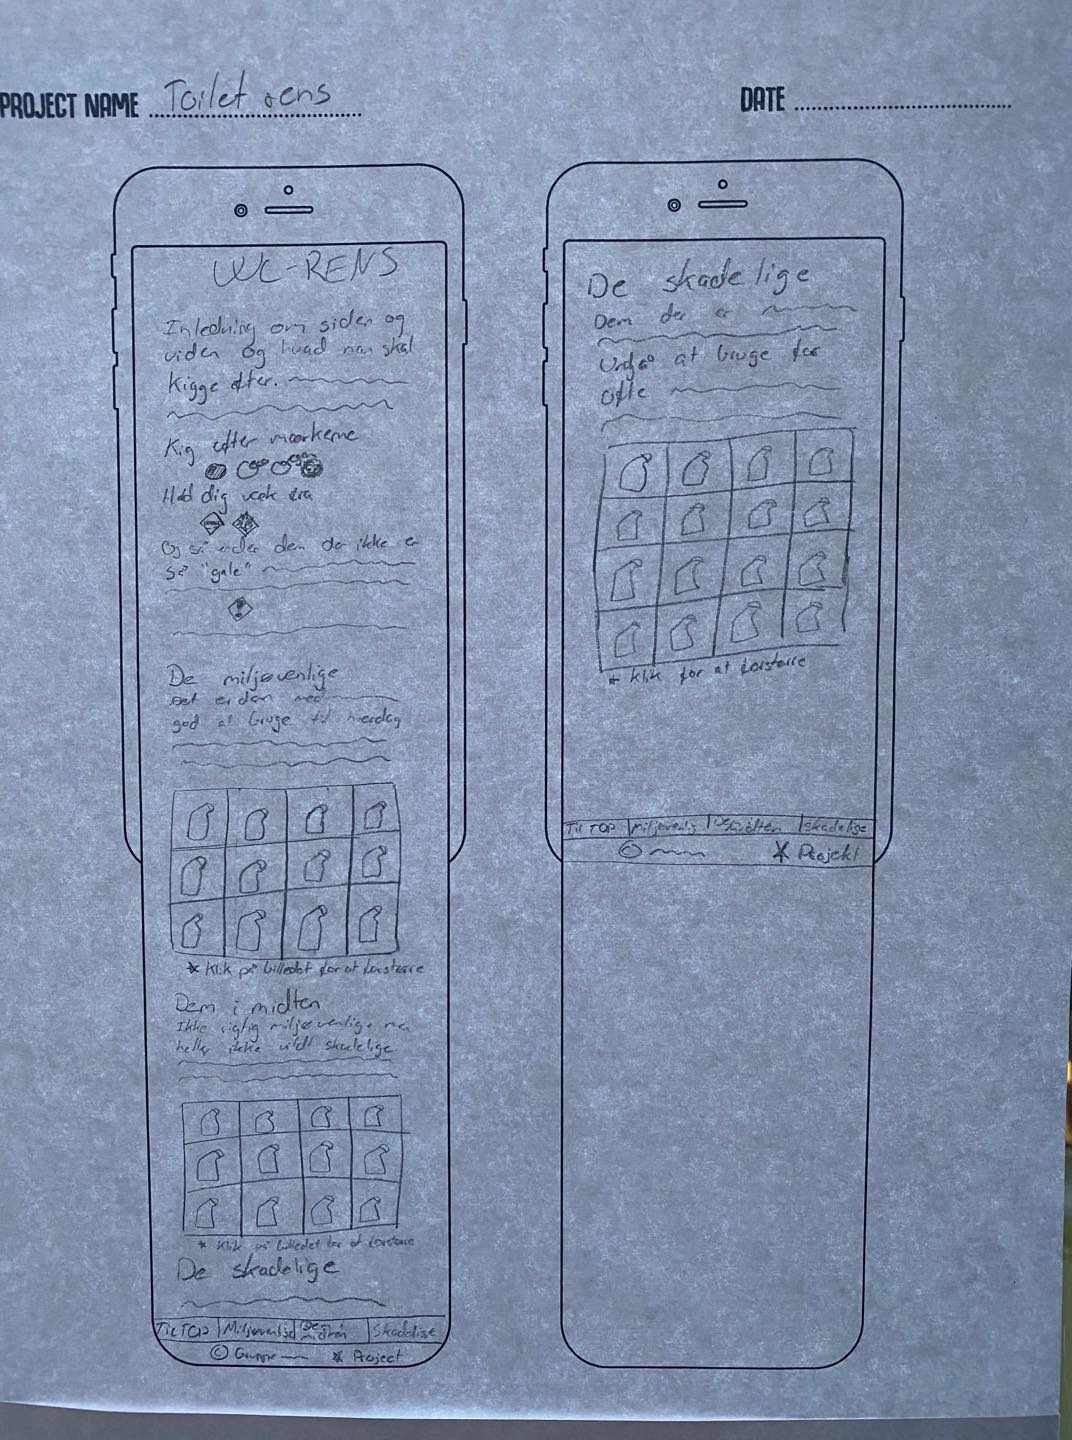 PROJECT NAME Toilet rens
DATE
WC-RENS
Inledning om siden og
viden og hvad man skal
kigge efter.
Kig efter mærkerne
Hold dig væk fra
Og så er der dem der ikke er
så "gale"
De miljøvenlige
med
god at bruge til hverdag
* Klik på billedet for at forstørre
Dem i midten
Ikke rigtig miljøvenlige men
heller ikke vildt skadelige
* Klik på billedet for at forstørre
De skadelige
Til TOP Miljøvenlig Dem i midten Skadelige
© Gruppe * Project
De skadelige
Dem der er
Undgå at bruge for
ofte
* Klik for at forstørre
Til TOP Miljøvenlig midten skadelige
© * Projekt